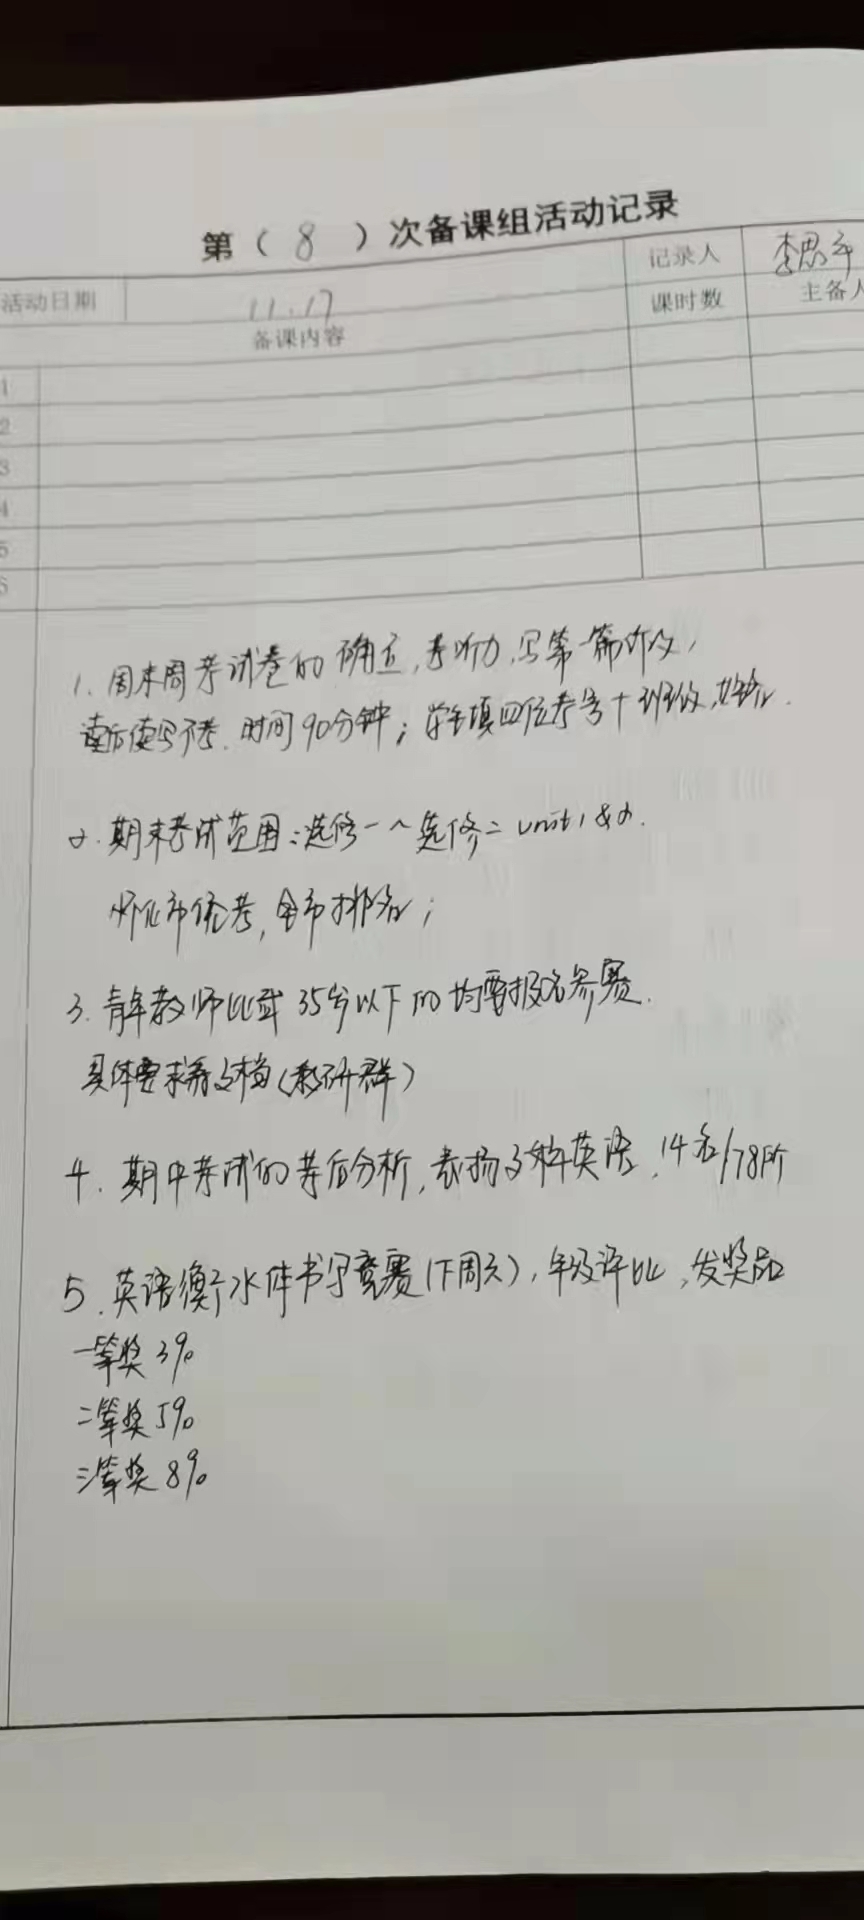 第（ 8 ）次备课组活动记录
活动日期 11.17 记录人 李思
备课内容 课时数 主备人
1
2
3
4
5
6
1. 周末周考试卷的确立,考听力,写第一篇作文,
读后续写不考.时间90分钟;学生填四位考号+班级,姓名.
2.期末考试范围:选修一~选修二 unit1&2.
怀化市统考,全市排名;
3.青年教师比武 35岁以下的均要报名参赛.
具体要求看文档(教研群)
4.期中考试的考后分析,表扬 英语,14名/78所
5.英语衡水体书写竞赛(下周五),年级评比,发奖品
一等奖3%
二等奖5%
三等奖8%